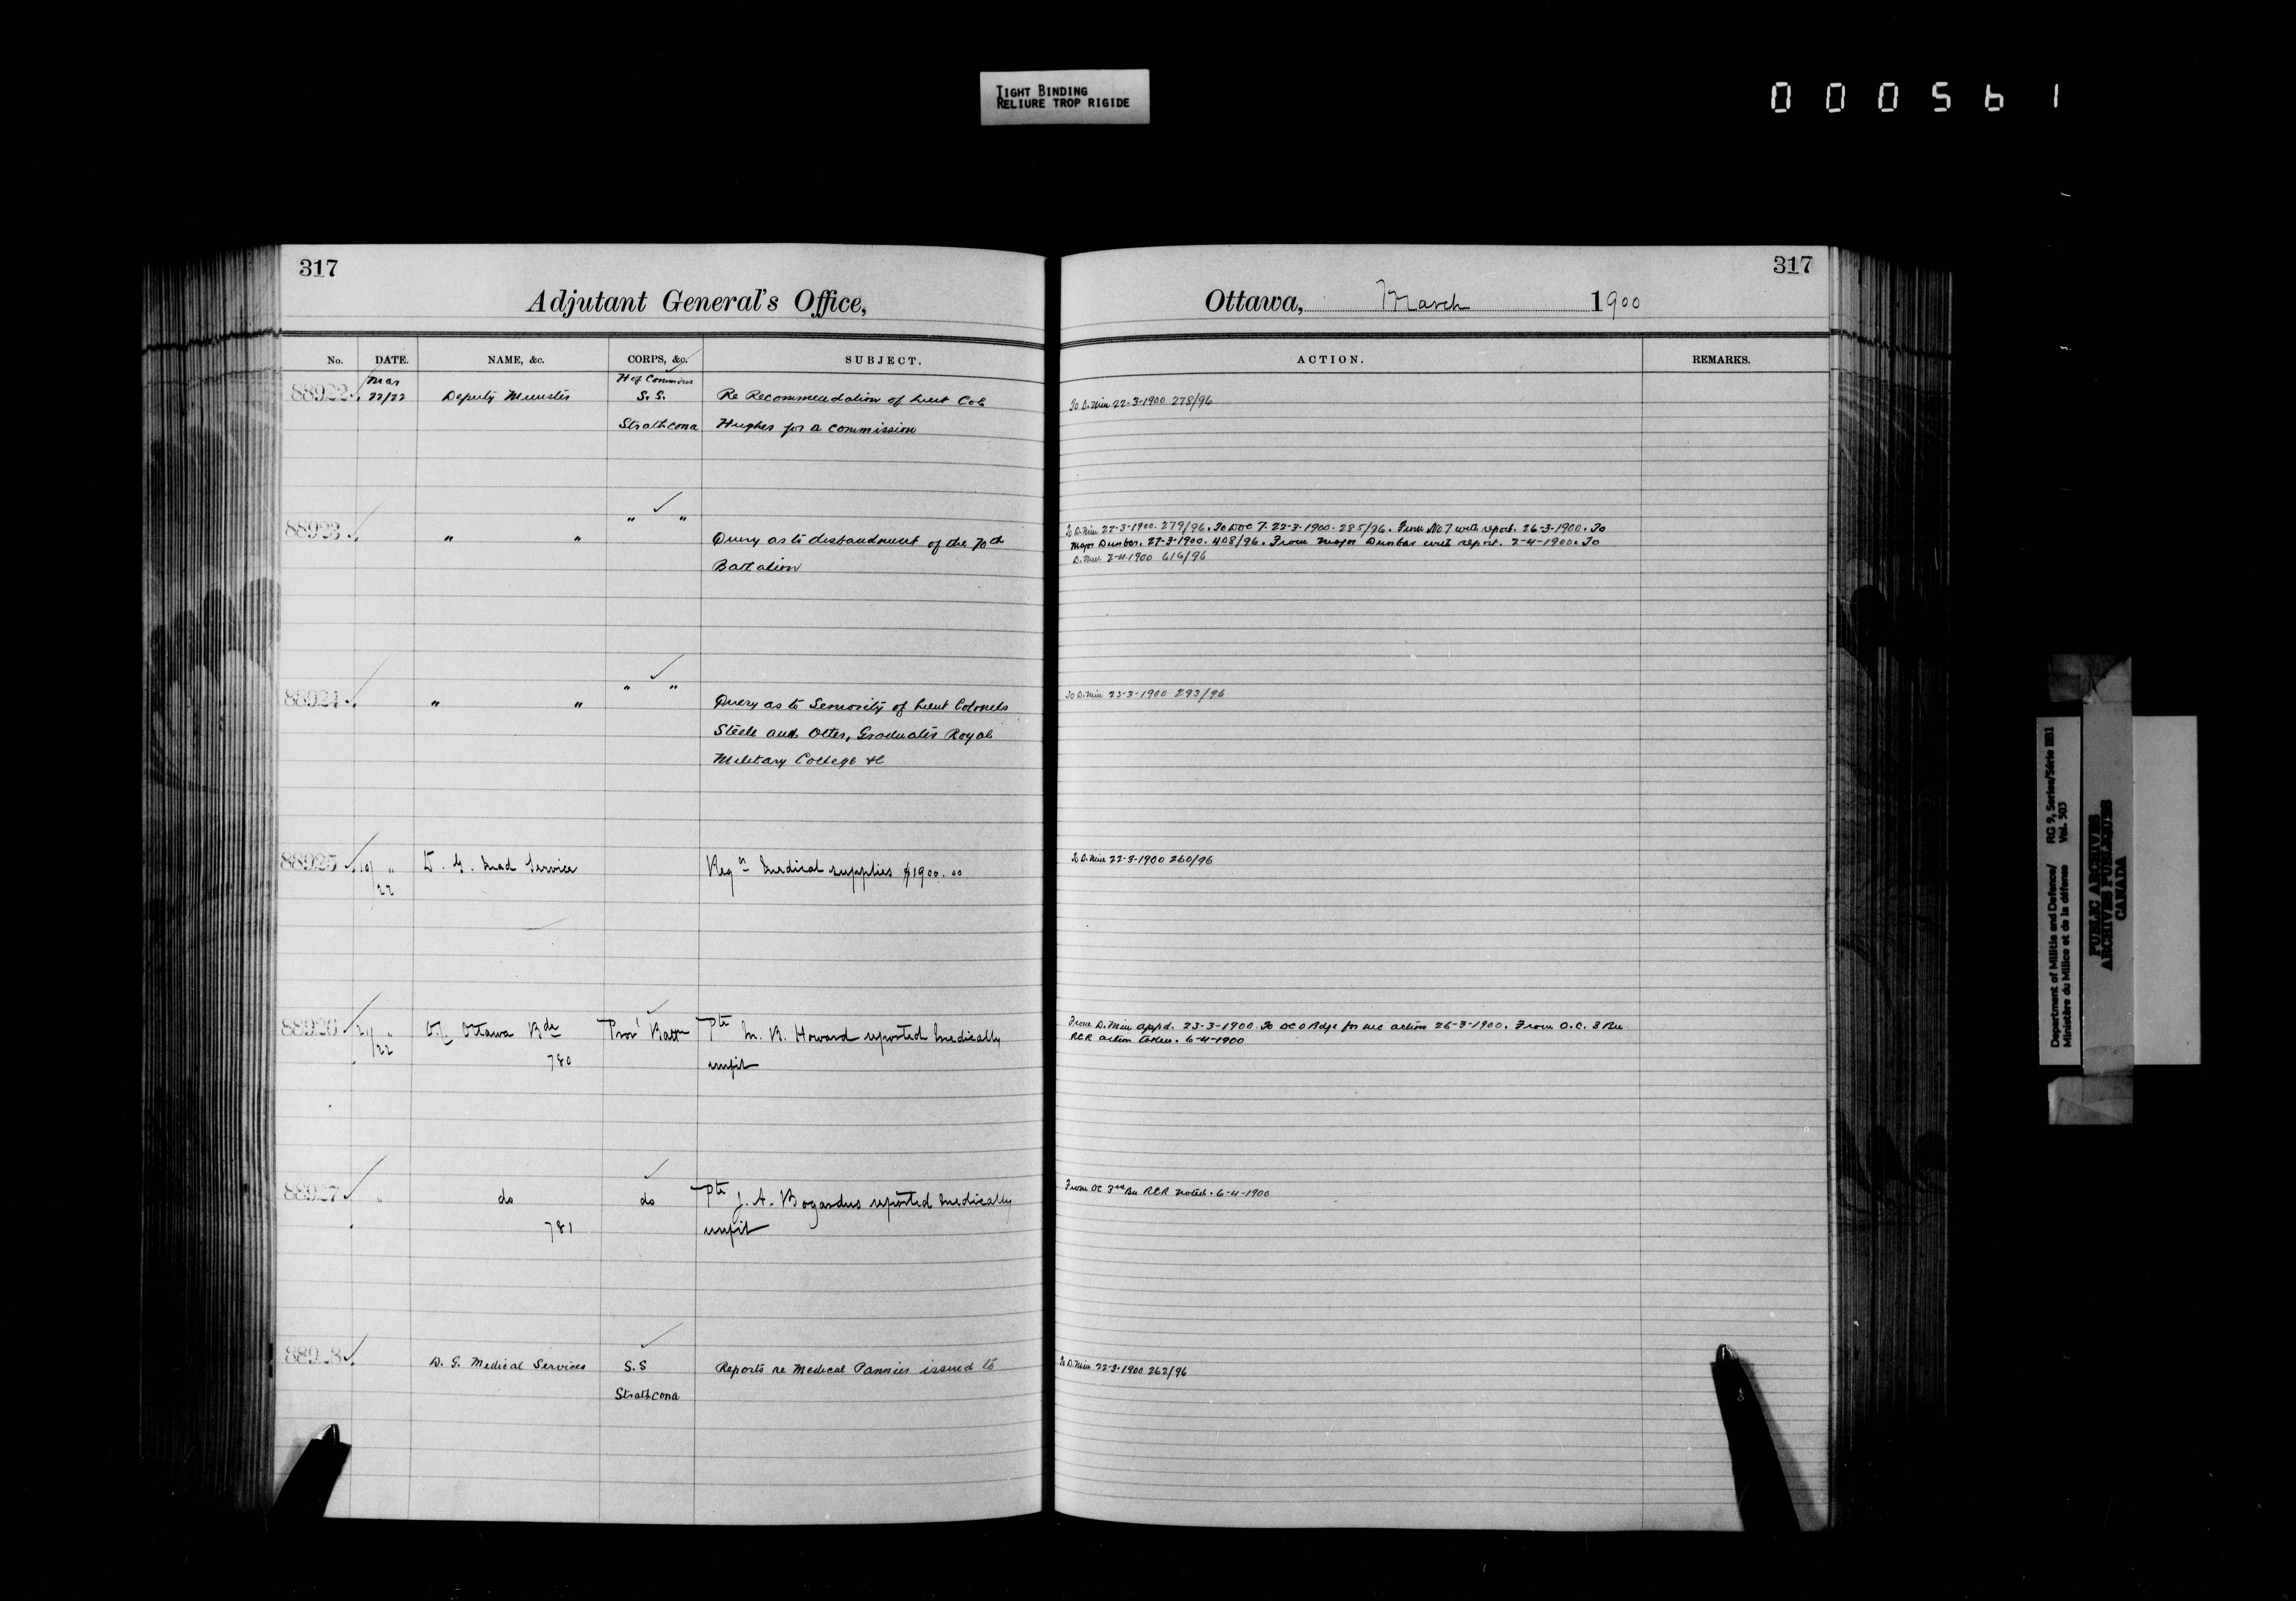 TIGHT BINDING
RELIURE TROP RIGIDE
000561
317
Adjutant General's Office,
No. DATE. NAME, &c. CORPS, &c. SUBJECT.
Mar H of Commons
88922 22/22 Deputy Minister S. S. Re Recommendation of Lieut Col
Strathcona Hughes for a commission
" "
88923 " " Query as to disbandment of the 70th
Battalion
" "
88924 " " Query as to Seniority of Lieut Colonels
Steele and Otter, Graduates Royal
Military College &c
88925 " D. G. Med Service Reqn Medical supplies $1900.00
/22
88926 21 " Ottawa Bde Prov'l Battn Pte M. B. Howard reported medically
/22 780 unfit
88927 " do do Pte J. A. Bogardus reported medically
781 unfit
88928 D. G. Medical Services S.S Reports re Medical Pannier issued to
Strathcona
317
Ottawa, March 1900
ACTION. REMARKS.
To D. Min 22-3-1900 278/96
To D. Min 22-3-1900. 279/96. To DOC 7. 22-3-1900. 285/96. From No 7 with report. 26-3-1900. To
Major Dunbar. 27-3-1900. 408/96. From Major Dunbar with report. 2-4-1900. To
D. Min 2-4-1900 616/96
To D. Min 23-3-1900 293/96
To D. Min 22-3-1900 260/96
From D. Min appd. 23-3-1900 To OC O Bdge for nec action 26-3-1900. From O.C. 3 Bn
RCR action taken. 6-4-1900
From OC 3rd Bn RCR noted. 6-4-1900
To D. Min 22-3-1900 262/96
Department of Militia and Defence/ RG 9, Series/Série IIB1
Ministère du Milice et de la défense Vol. 503
PUBLIC ARCHIVES
ARCHIVES PUBLIQUES
CANADA